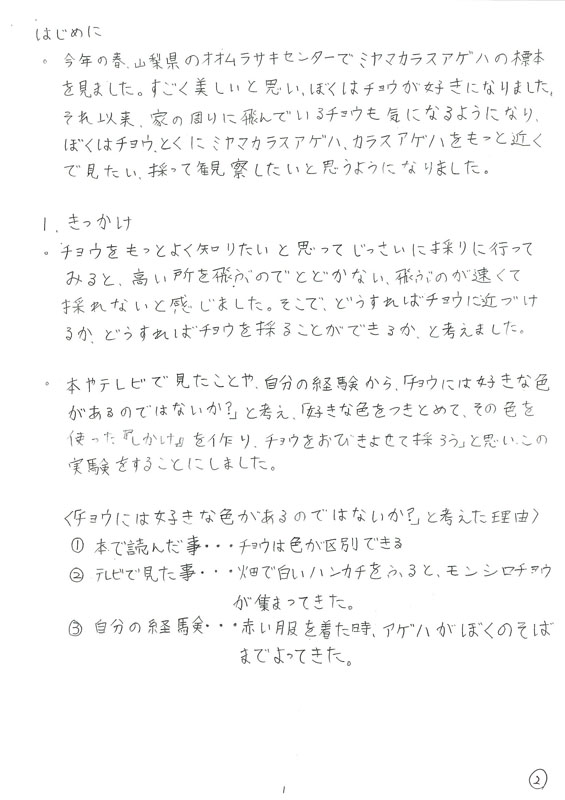 はじめに
。今年の春、山梨県のオオムラサキセンターでミヤマカラスアゲハの標本
を見ました。すごく美しいと思い、ぼくはチョウが好きになりました。
それ以来、家の周りに飛んでいるチョウも気になるようになり、
ぼくはチョウ、とくにミヤマカラスアゲハ、カラスアゲハをもっと近く
で見たい、採って観察したいと思うようになりました。
1、きっかけ
。チョウをもっとよく知りたいと思ってじっさいに採りに行って
みると、高い所を飛ぶのでとどかない、飛ぶのが速くて
採れないと感じました。そこで、どうすればチョウに近づけ
るか、どうすればチョウを採ることができるか、と考えました。
。本やテレビで見たことや、自分の経験から、「チョウには好きな色
があるのではないか?」と考え、「好きな色をつきとめて、その色を
使った『しかけ』を作り、チョウをおびきよせて採ろう」と思い、この
実験をすることにしました。
〈「チョウには好きな色があるのではないか?」と考えた理由〉
① 本で読んだ事・・・チョウは色が区別できる
② テレビで見た事・・・畑で白いハンカチをふると、モンシロチョウ
が集まってきた。
③ 自分の経験・・・赤い服を着た時、アゲハがぼくのそば
までよってきた。
1
②